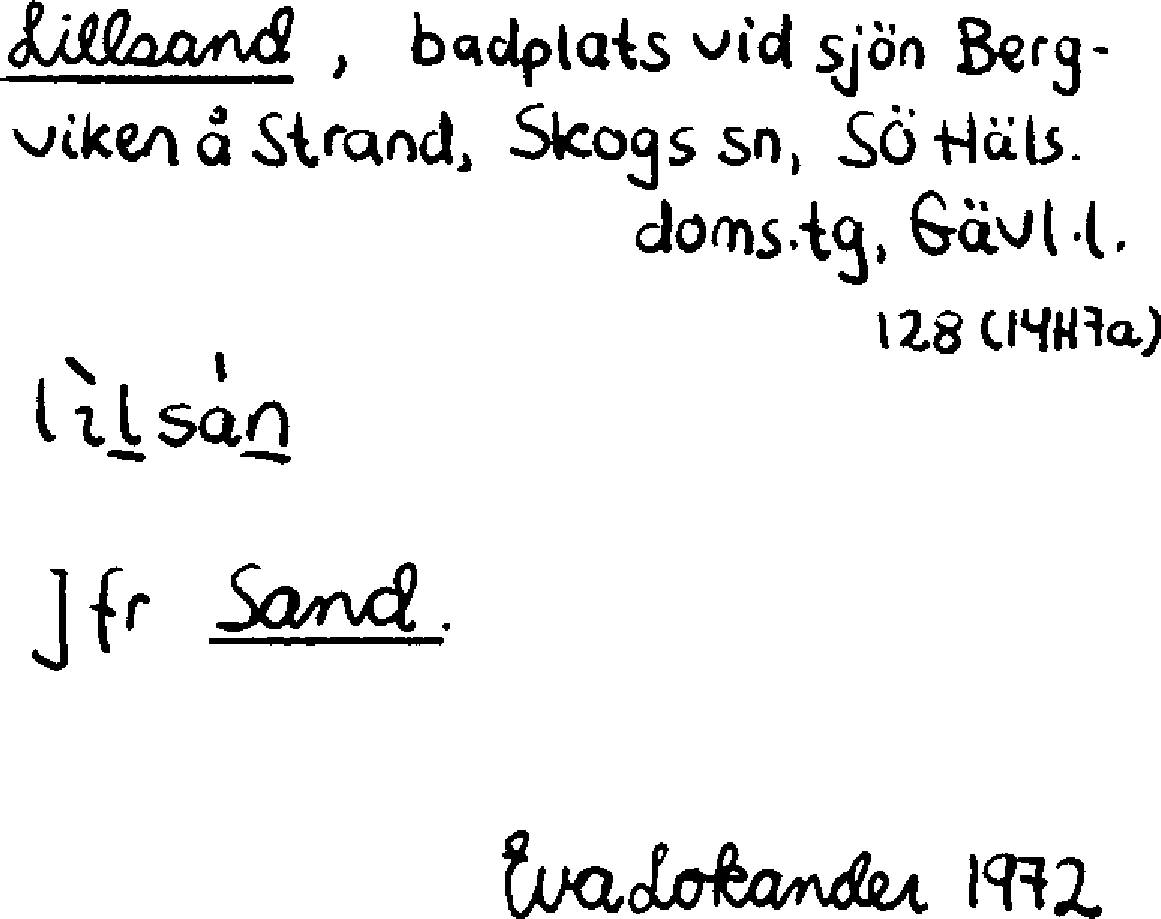 Lillsand, badplats vid sjön Berg-
viken å Strand, Skogs sn, SÖ Häls.
doms.tg, Gävl.l.
128 (14H7a)
lìl̲sán̲
Jfr Sand.
Eva Lokander 1972